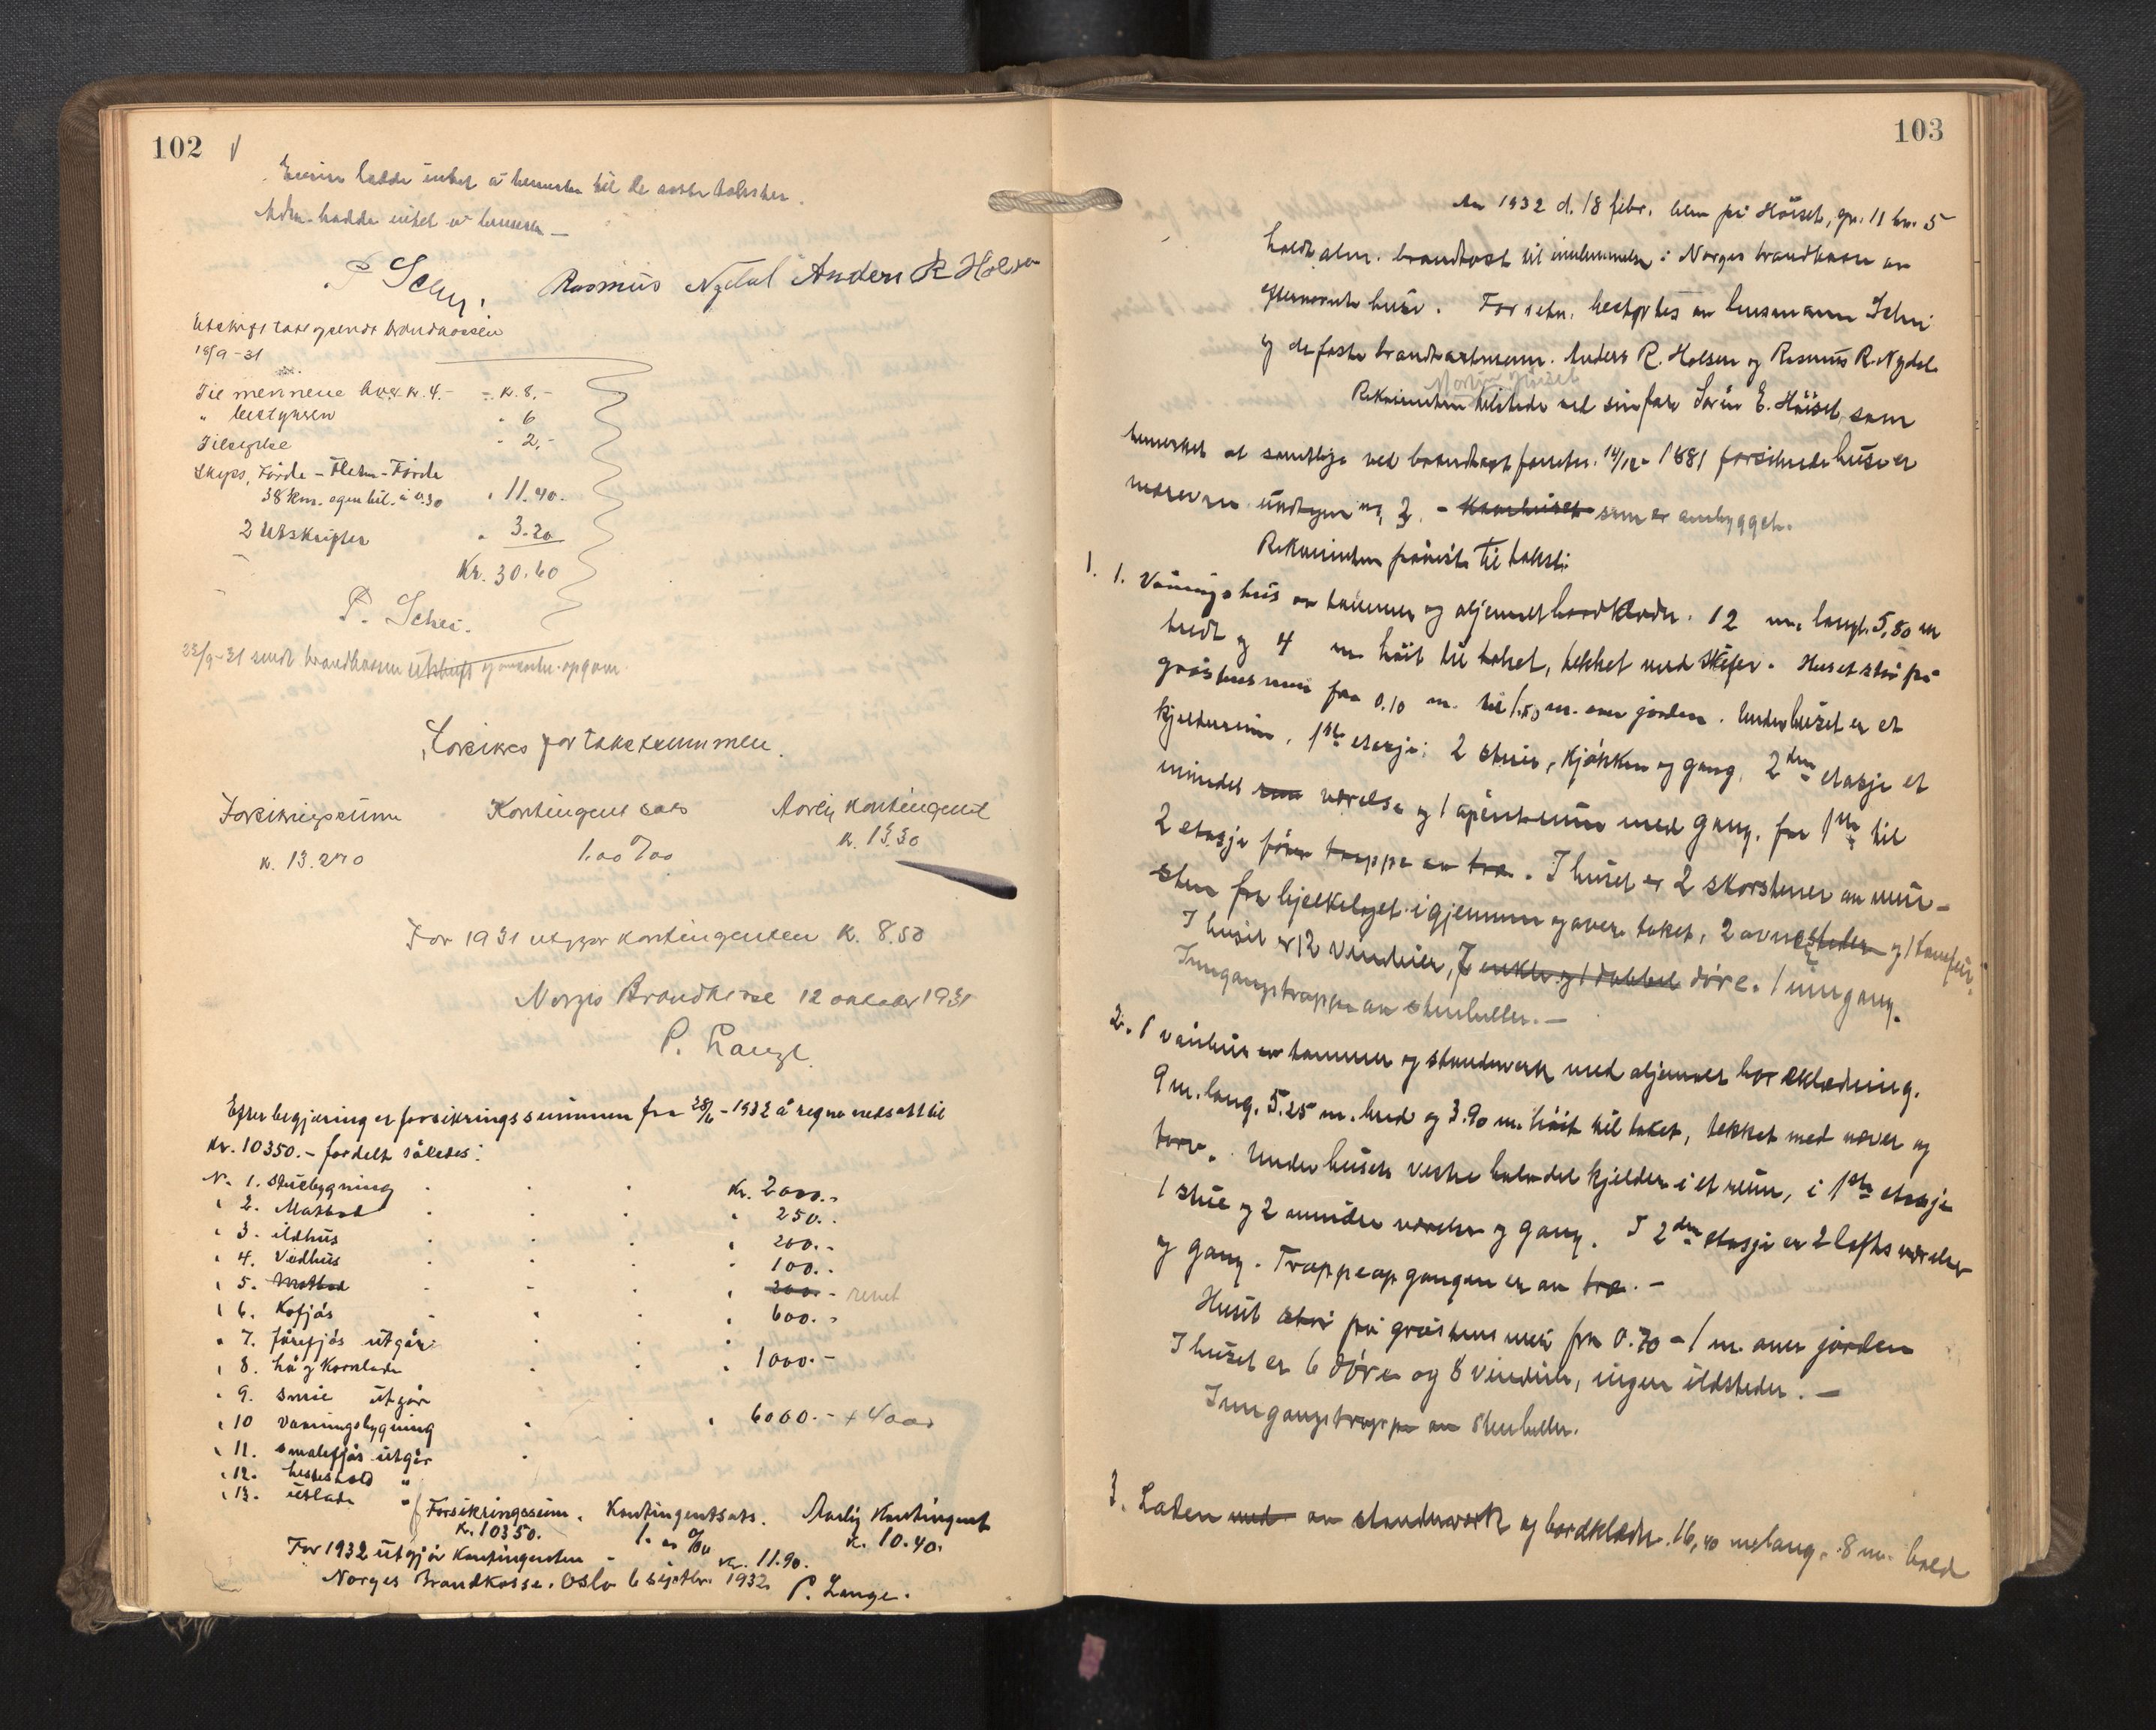 102
Eieren hadde intet å bemerke til de ansatte takster.
Adm. hadde intet å bemerke —
P Schei. Rasmus Nydal Anders R Holsen
Utskrift takst sendt brandkassen
18/9-31
Til mennene hver kr. 4.- = kr. 8.-
" bestyreren " 6
Tilsigelse " 2,-
Skyss, Förde - Förde
38 km. egen bil. à 0.30 " 11.40.
2 Utskrifter " 3.20
Kr. 30.60
P. Schei.
22/9-31 sendt brandkassen utskrift
Forsikres for takstsummen.
Forsikringssum Kontingent sats Aarlig Kontingent
k. 13.270 1.00 ‰ k. 13.30
For 1931 utgjør kontingenten k. 8.50
Norges Brandkasse 12 oktober 1931
P. Lange
Efter begjæring er forsikringssummen fra 28/6-1932 å regne nedsatt til
Kr. 10350.- fordelt således:
Nr. 1. Stuebygning Kr. 2000.-
" 2. Matbod " 250.-
" 3. ildhus " 200.-
" 4. Vedhus " 100.-
" 5. Matbod " 200.- revet
" 6. Kofjös " 600.-
" 7. fårefjös utgår
" 8. hö og Kornlade " 1000.-
" 9. smie utgår
" 10 Vaaningsbygning " 6000.- + 4000
" 11. smalefjös utgår
" 12. hestestald "
" 13. utlade "
Forsikringssum. Kontingentsats. Aarlig Kontingent
K. 10350. 1.00 ‰ K. 10.40.
For 1932 utgjör Kontingenten - kr. 11.90.
Norges Brandkasse. Oslo 6 septbr. 1932. P. Lange.
103
År 1932 d. 18 febr. blev på Höiset, gn. 11 bn. 5
holdt alm. brandtakst til innlemmelse i Norges brandkasse av
efternevnte huse. Forretn. bestyrtes av lensmann Schei
og de faste brandtakstmenn. Anders R. Holsen og Rasmus R. Nydal.
Rekvirenten Morten Höiset tilstede ved sin far Sören E. Höiset, som
bemerket at samtlige ved brandtakst forretn. 14/12-1881 forsikrede huse er
nedrevne undtagen nr. 2. - Kaarhuset som er ombygget.
Rekvirenten påviste til takst:
1. 1. Våningshus av tømmer og utvendig bordklædn. 12 m. langt. 5,80 m
bredt og 4 m höit til taket, tekket med Skifer. Huset står på
gråstensmur fra 0.10 m. til 1.50 m. over jorden. Under huset er et
kjelderrum. 1ste etasje: 2 stuer, kjökken og gang, 2den etasje et
innredet rum værelse og 1 åpent rum med gang. fra 1ste til
2 etasje fører trappe av træ. I huset er 2 skorstener av mur-
sten fra bjelkelaget igjennem og over taket, 2 ovnssteder og 1 komfyr.
I huset er 12 vinduer, 7 enkle og 1 dobbel döre. 1 inngang.
Inngangstrappe av stenheller. —
2. 1 våhus av tømmer og standerverk med bordklædning.
9 m. lang. 5.25 m. bred og 3.90 m. höit til taket, tekket med never og
torv. Under husets vestre halvdel kjelder i et rum, i 1ste etasje
1 stue og 2 mindre værelser og gang. I 2den etasje er 2 loftsværelser
og gang. Trappeopgangen er av træ. -
Huset står på gråstensmur fra 0.70 - 1 m. over jorden
I huset er 6 döre og 8 vinduer, ingen ildsteder. —
Inngangstrappe av stenheller.
3. Laden med av standerverk og bordklædn. 16,40 m lang. 8 m. bred